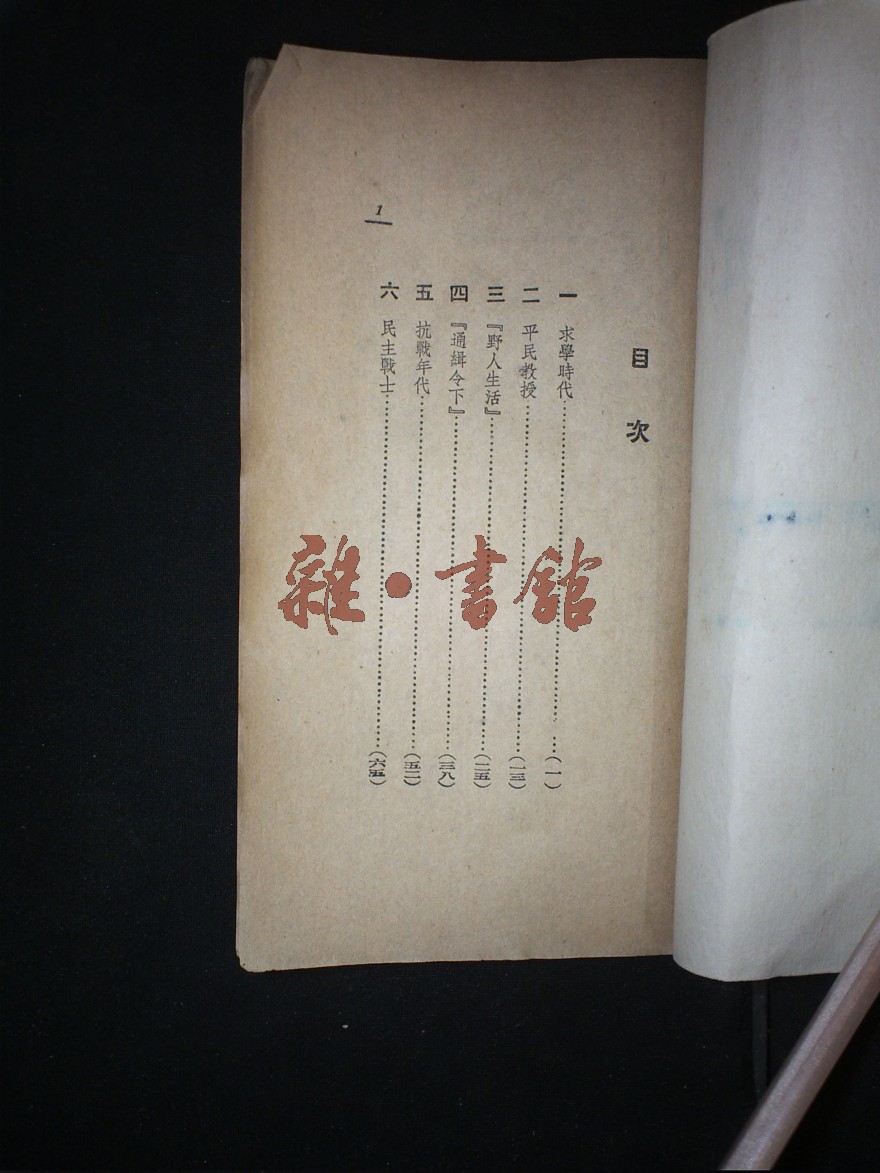 目次
一 求學時代……(一)
二 平民教授……(一三)
三 『野人生活』……(二五)
四 『通緝令下』……(三八)
五 抗戰年代……(五二)
六 民主戰士……(六五)
1
雜·書館